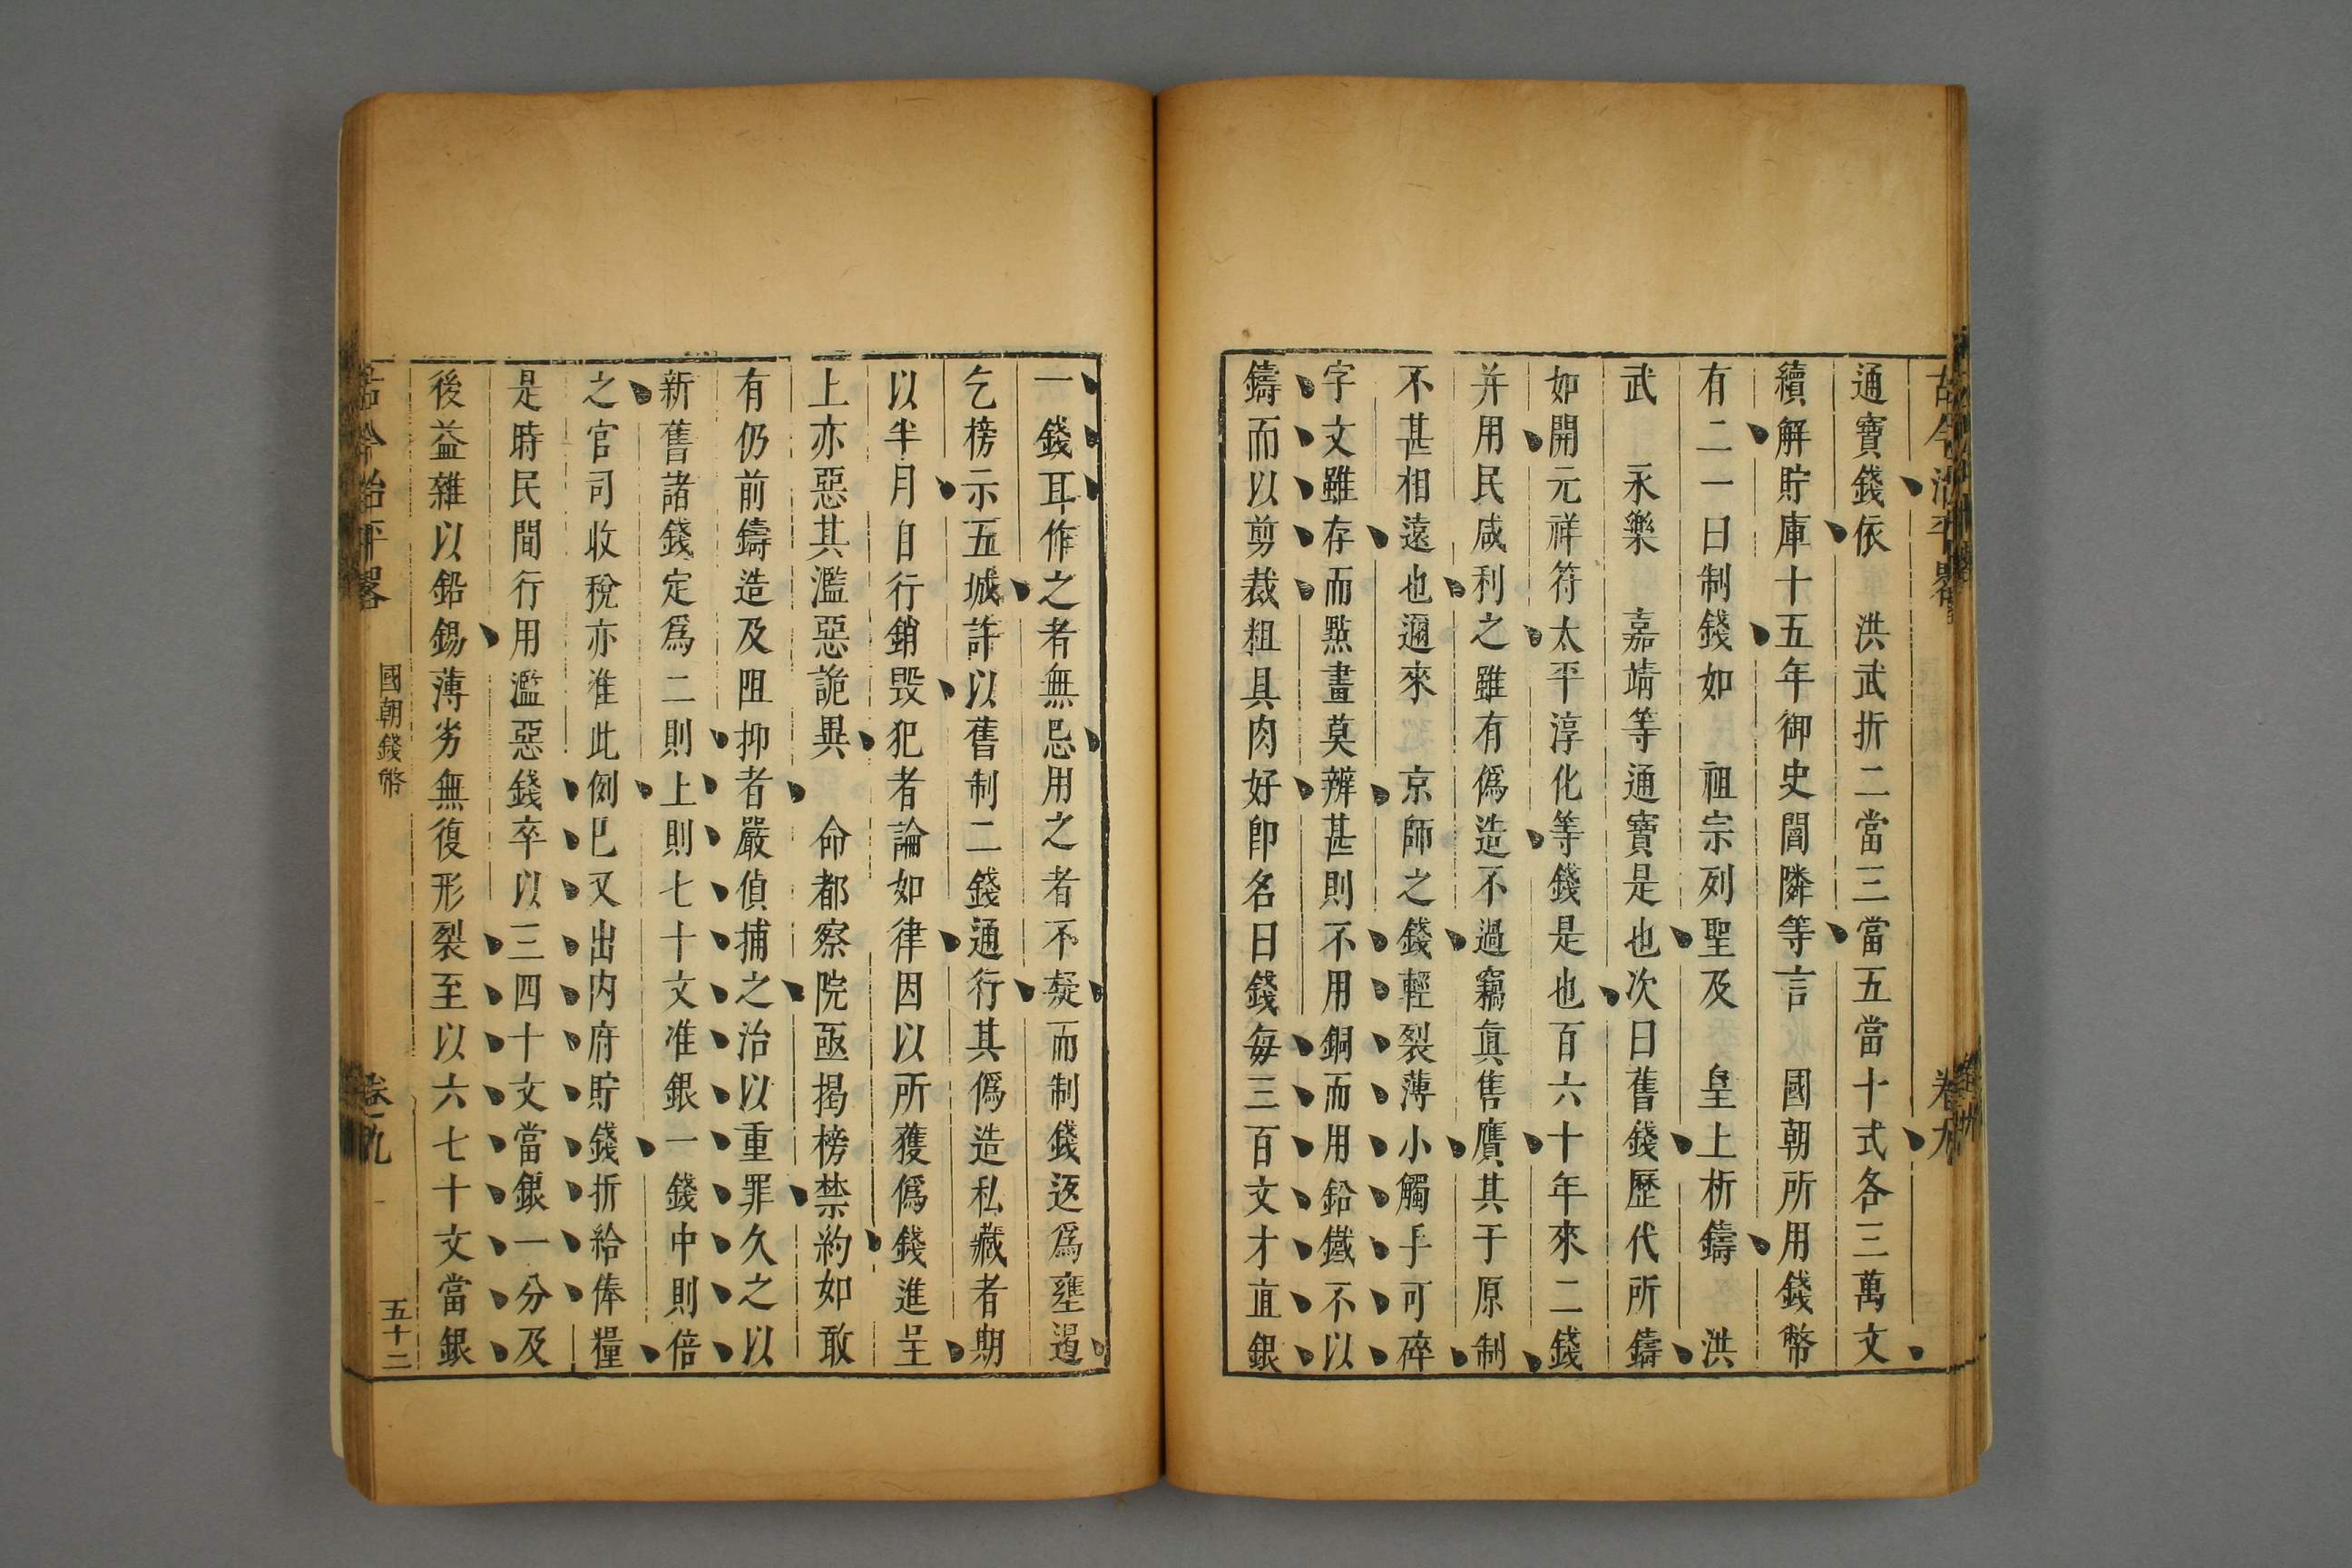 古今治平畧 卷九
通寶錢依 洪武折二當三當五當十式各三萬文
續解貯庫十五年御史閻隣等言 國朝所用錢幣
有二一曰制錢如 祖宗列聖及 皇上所鑄 洪
武 永樂 嘉靖等通寶是也次曰舊錢歷代所鑄
如開元祥符太平淳化等錢是也百六十年來二錢
并用民咸利之雖有僞造不過竊眞售贋其于原制
不甚相遠也邇來 京師之錢輕裂薄小觸手可碎
字文雖存而點畫莫辨甚則不用銅而用鉛鐵不以
鑄而以剪裁粗具肉好卽名曰錢每三百文才直銀
一錢耳作之者無忌用之者不疑而制錢返爲壅遏
乞榜示五城許以舊制二錢通行其僞造私藏者期
以半月自行銷毀犯者論如律因以所獲僞錢進呈
上亦惡其濫惡詭異 命都察院亟揭榜禁約如敢
有仍前鑄造及阻抑者嚴偵捕之治以重罪久之以
新舊諸錢定爲二則上則七十文准銀一錢中則倍
之官司收稅亦准此例已又出内府貯錢折給俸糧
是時民間行用濫惡錢卒以三四十文當銀一分及
後益雜以鉛錫薄劣無復形裂至以六七十文當銀
古今治平畧 國朝錢幣 卷九 五十二